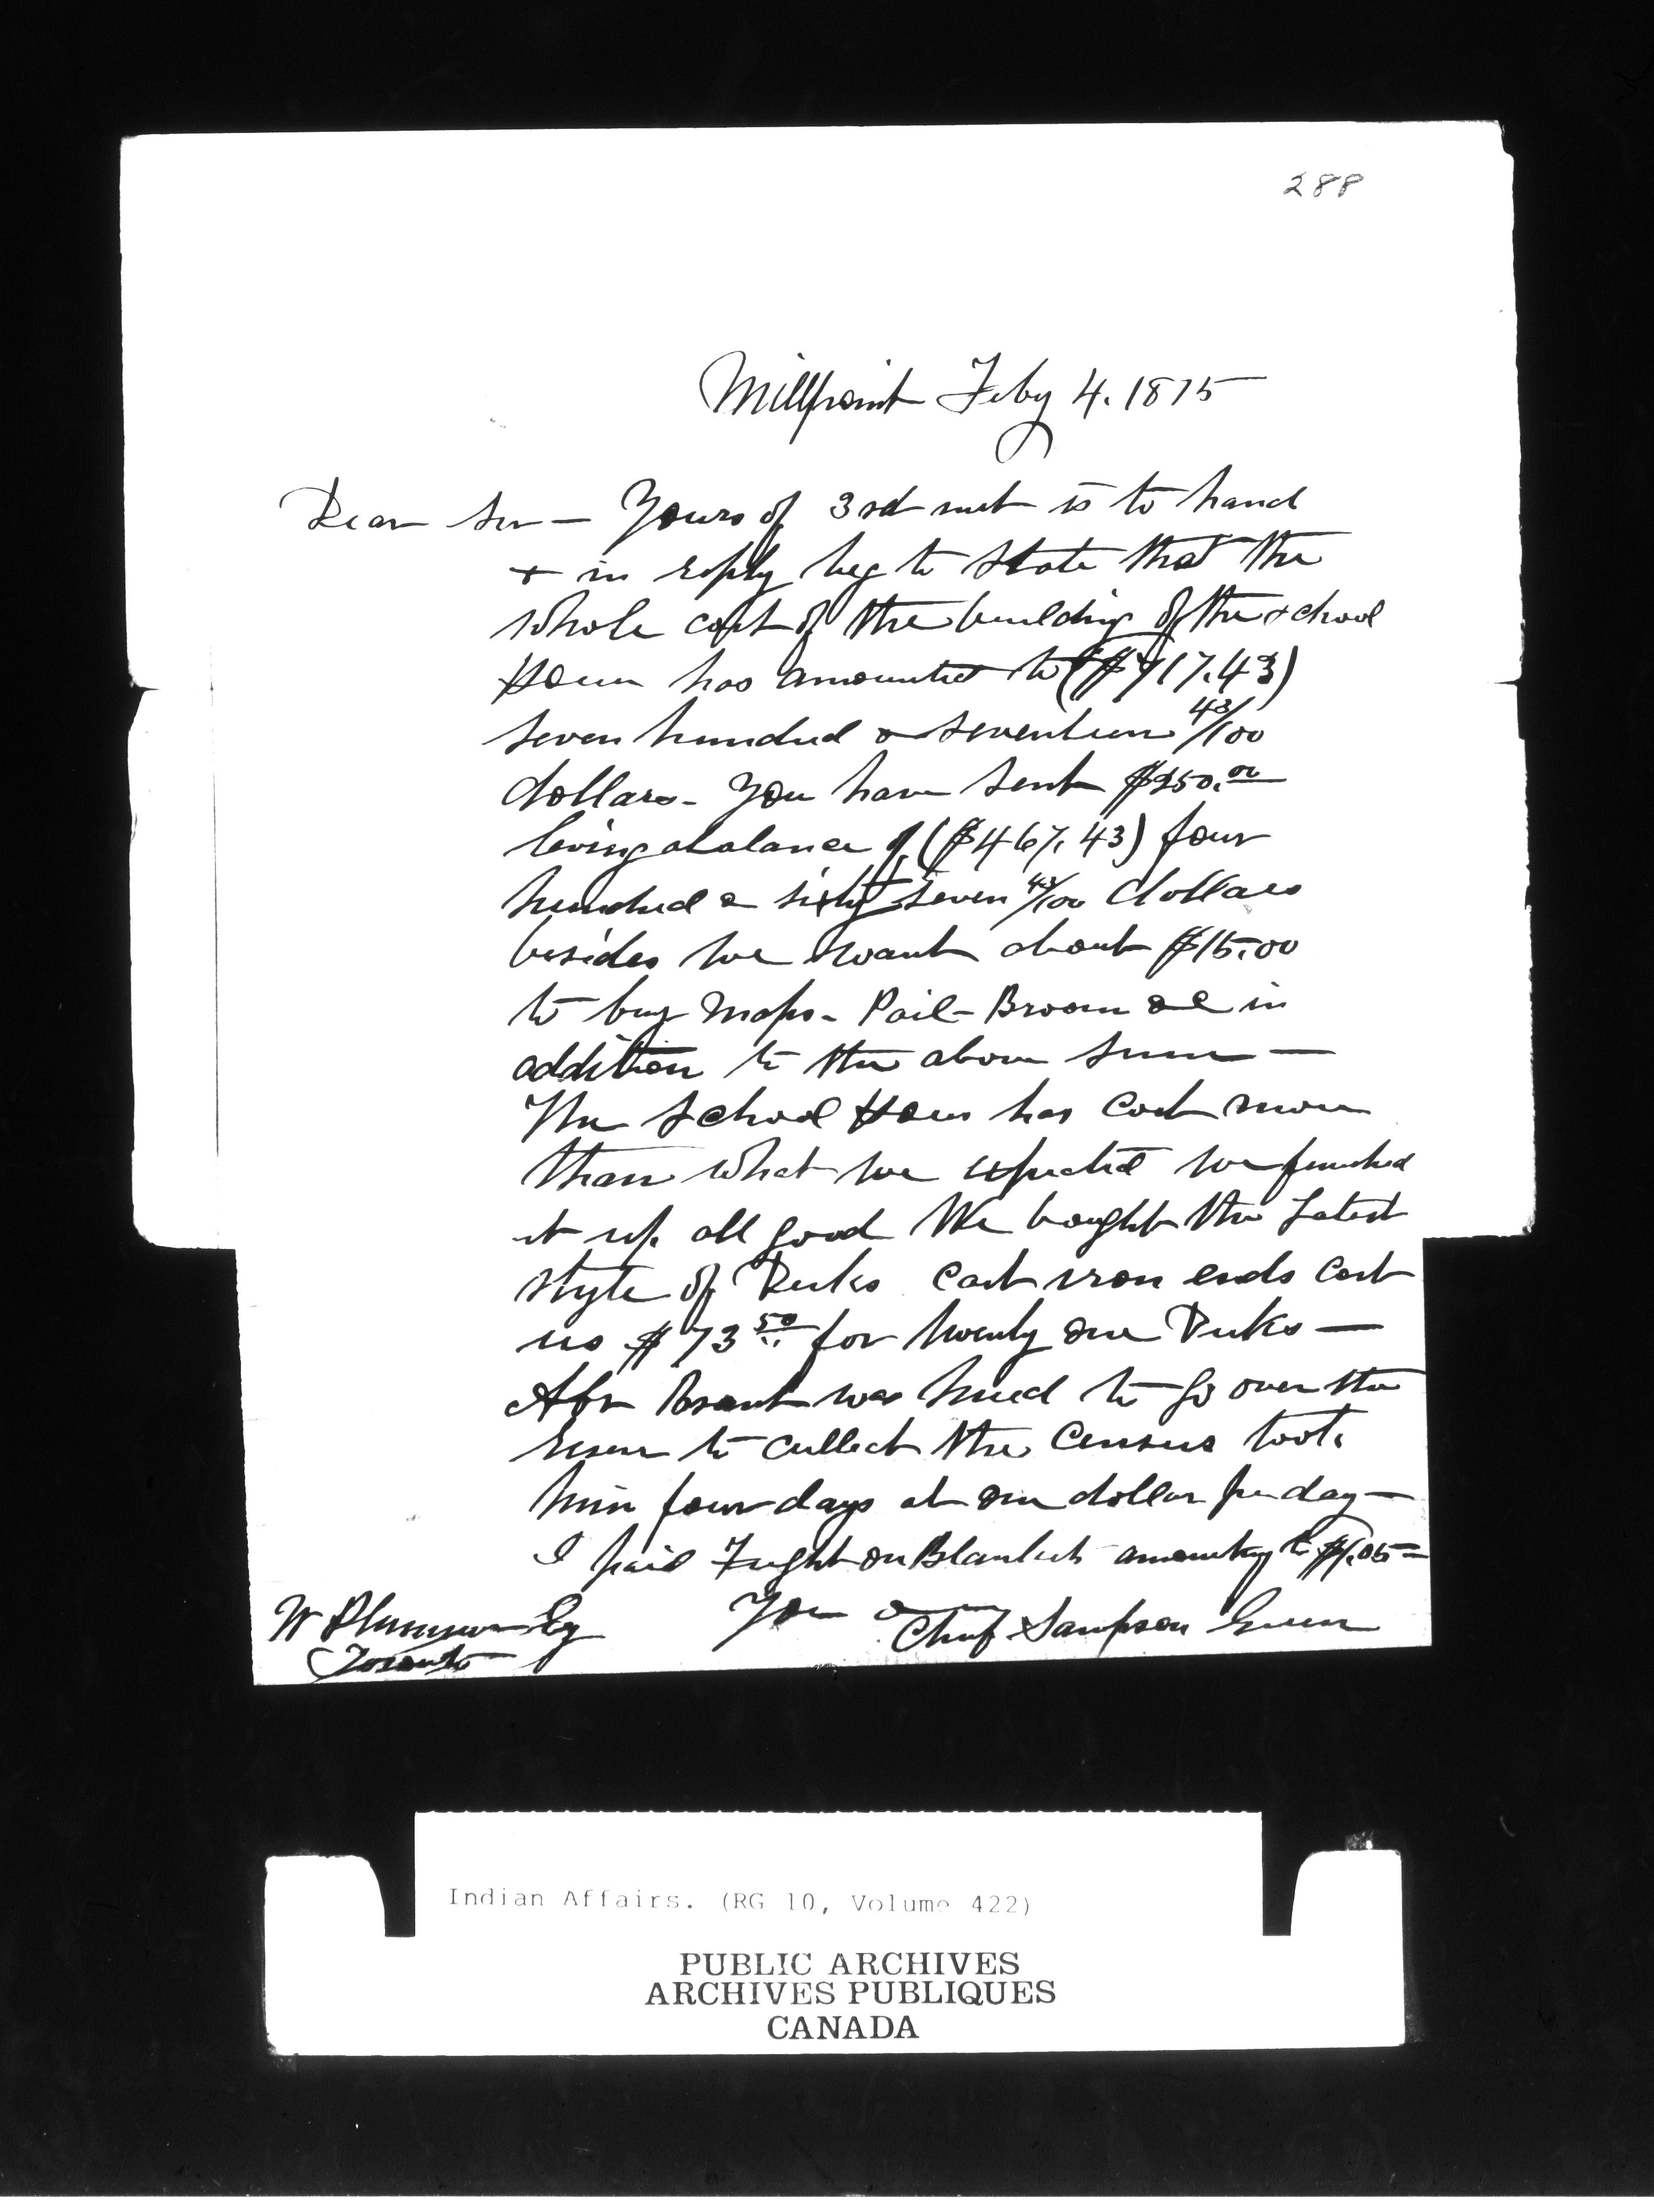 288
Millpoint Feby 4. 1875
Dear Sir - Yours of 3rd inst is to hand
+ in reply beg to state that the
whole cost of the building of the school
House has amounted to ($717.43)
seven hundred & seventeen 43/100
dollars - You have sent $250.00
leving a balance of ($467.43) four
hundred & sixty seven 43/100 dollars
besides we want about $15.00
to buy Maps - Pail - Broom &c in
addition to the above sum —
The School House has Cost more
than what we expected we finished
it up all good We bought the Latest
style of Desks Cast iron ends Cost
us $73 50 for twenty one Desks —
Abr Brant was hired to go over the
reserve to cullect the Census took
him four days at one dollar per day —
I paid Freight on Blankets amounting to $1.05 —
You &c
Chief Sampson Green
W Plummer Esq
Toronto
Indian Affairs. (RG 10, Volume 422)
PUBLIC ARCHIVES
ARCHIVES PUBLIQUES
CANADA